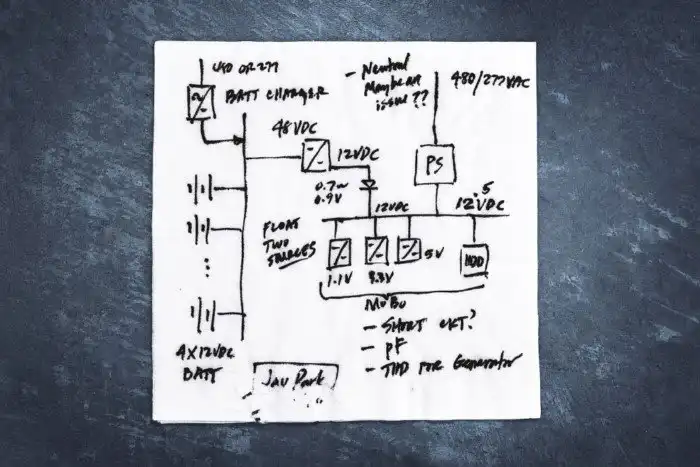 480 OR 277
BATT CHARGER
48VDC
12VDC
0.7~
0.9V
4X12VDC
BATT
- Neutral
Maybe an
issue??
480/277VAC
PS
12.5
VDC
12VDC
FLOAT
TWO
SOURCES
1.1V
3.3V
5V
HDD
MOBO
- SHORT CKT?
- PF
- THD FOR Generator
Jay Park